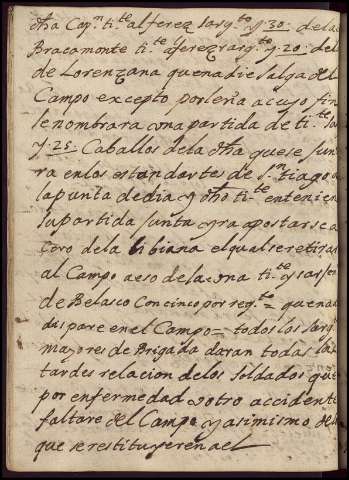 dha Capn tite alferez sargto y 30 de la
Bracamonte tite alferez sargto y 20 del
de Lorenzana que nadie salga del
Campo excepto por leña a cuyo fin
se nombrara una partida de tite
y 25 Caballos de la dha que se jun
ra en los estandartes de Sn tiago a
la punta de dia y dho tite en tenien
su partida junta yra apostarse a
Coro de la bibiana el qual se retira
al Campo a eso de la una tite y sarjen
de Belasco Con cinco por regto = que na
dispare en el Campo = todos los sarg
mayores de Brigada daran todas las
tardes relacion de los soldados que
por enfermedad u otro accidente
faltare del Campo y asimismo de
que se restituyeren a el